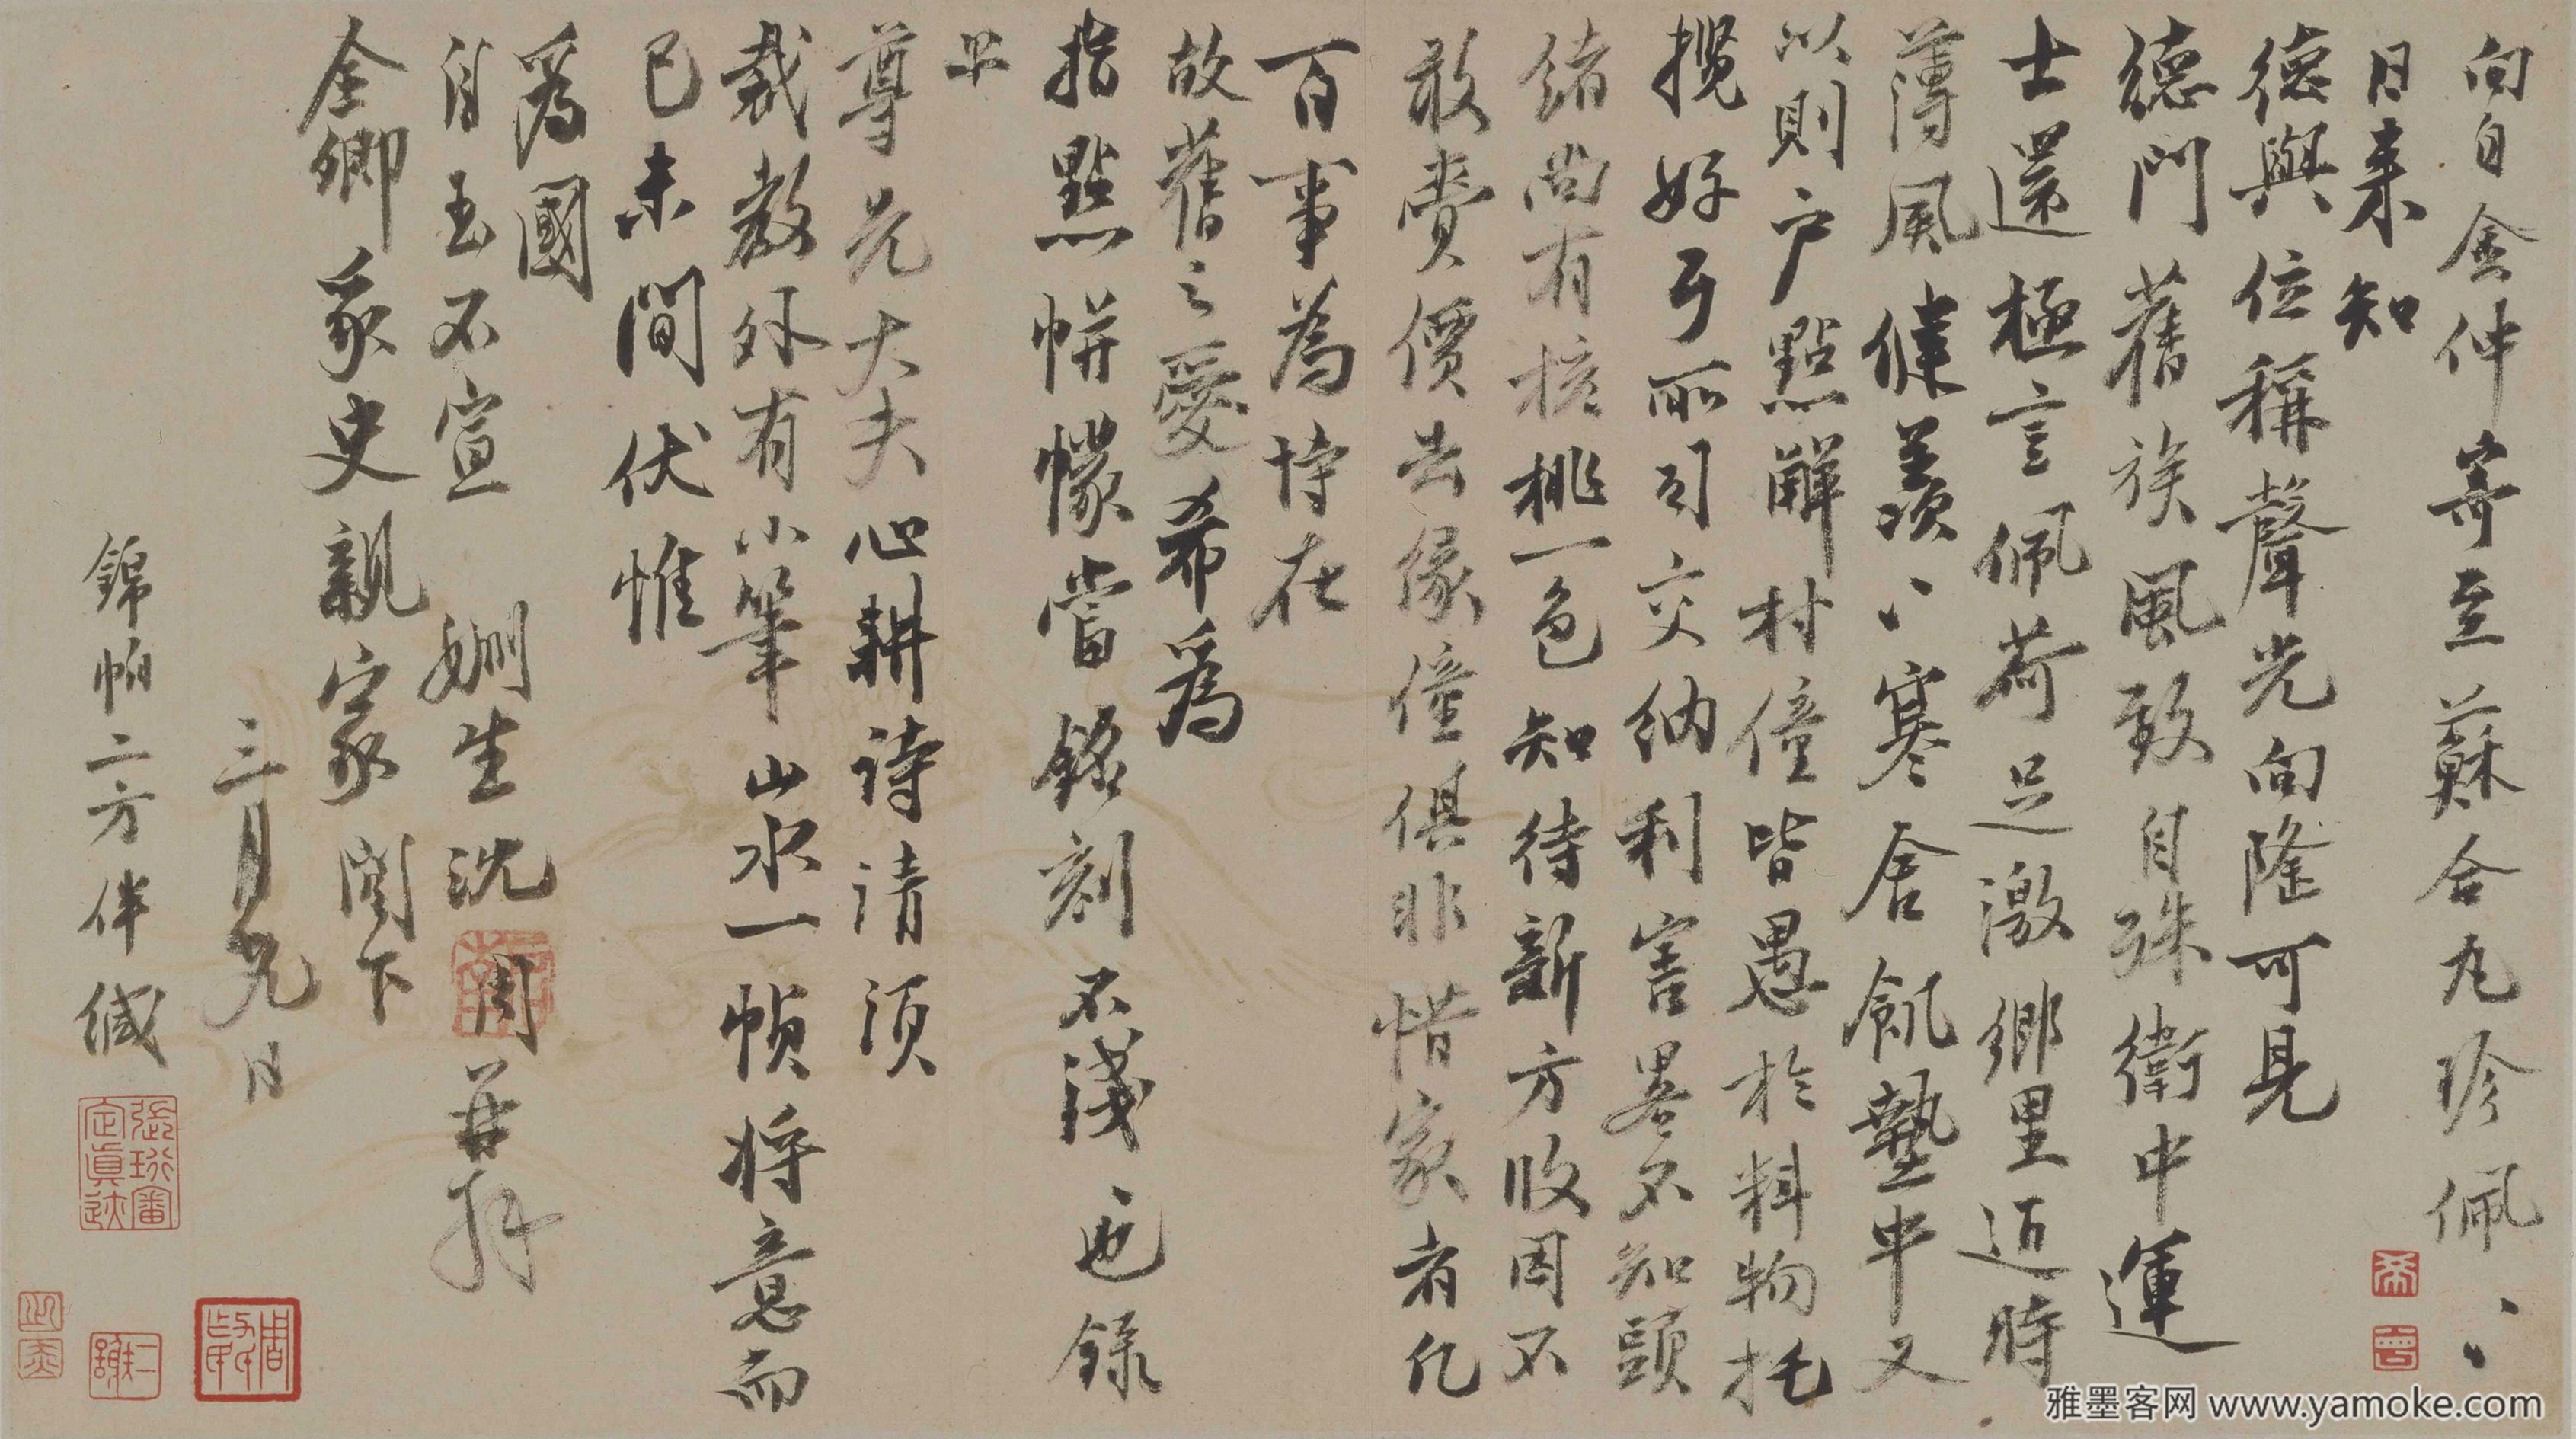 向自金仲寄至蘇合丸珍佩〻
日来知
德與位稱聲光向隆可見
德門舊族風致自殊衛中運
士還極言佩荷足激鄉里迈時
薄風健羨〻寒舍瓴甓中又
以則户點解村僮皆愚於料物托
攬好歹所司交納利害畧不知頭
緒尚有擔桃一色知待新方收固不
敢費價去緣僮俱非惜家者凡
百事為恃在
故舊之愛希為
指點帡幪當銘刻不淺也録
尊先大夫心耕詩請須
裁教外有小筆山水一幀将意而
已未間伏惟
為國
自玉不宣 姻生沈周再拜
全卿豸史親家閣下
三月九日
錦帕二方伴缄
張珩審定真迹
雅墨客网 www.yamoke.com